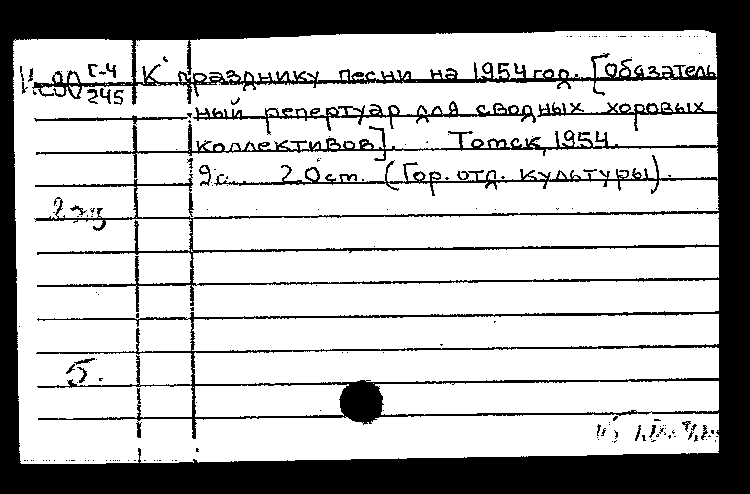 Г-4 К празднику песни на 1954 год. [Обязатель
245
ный репертуар для сводных хоровых
коллективов]. Томск, 1954.
9с. 20 см. (Гор. отд. культуры).
2 экз
5.